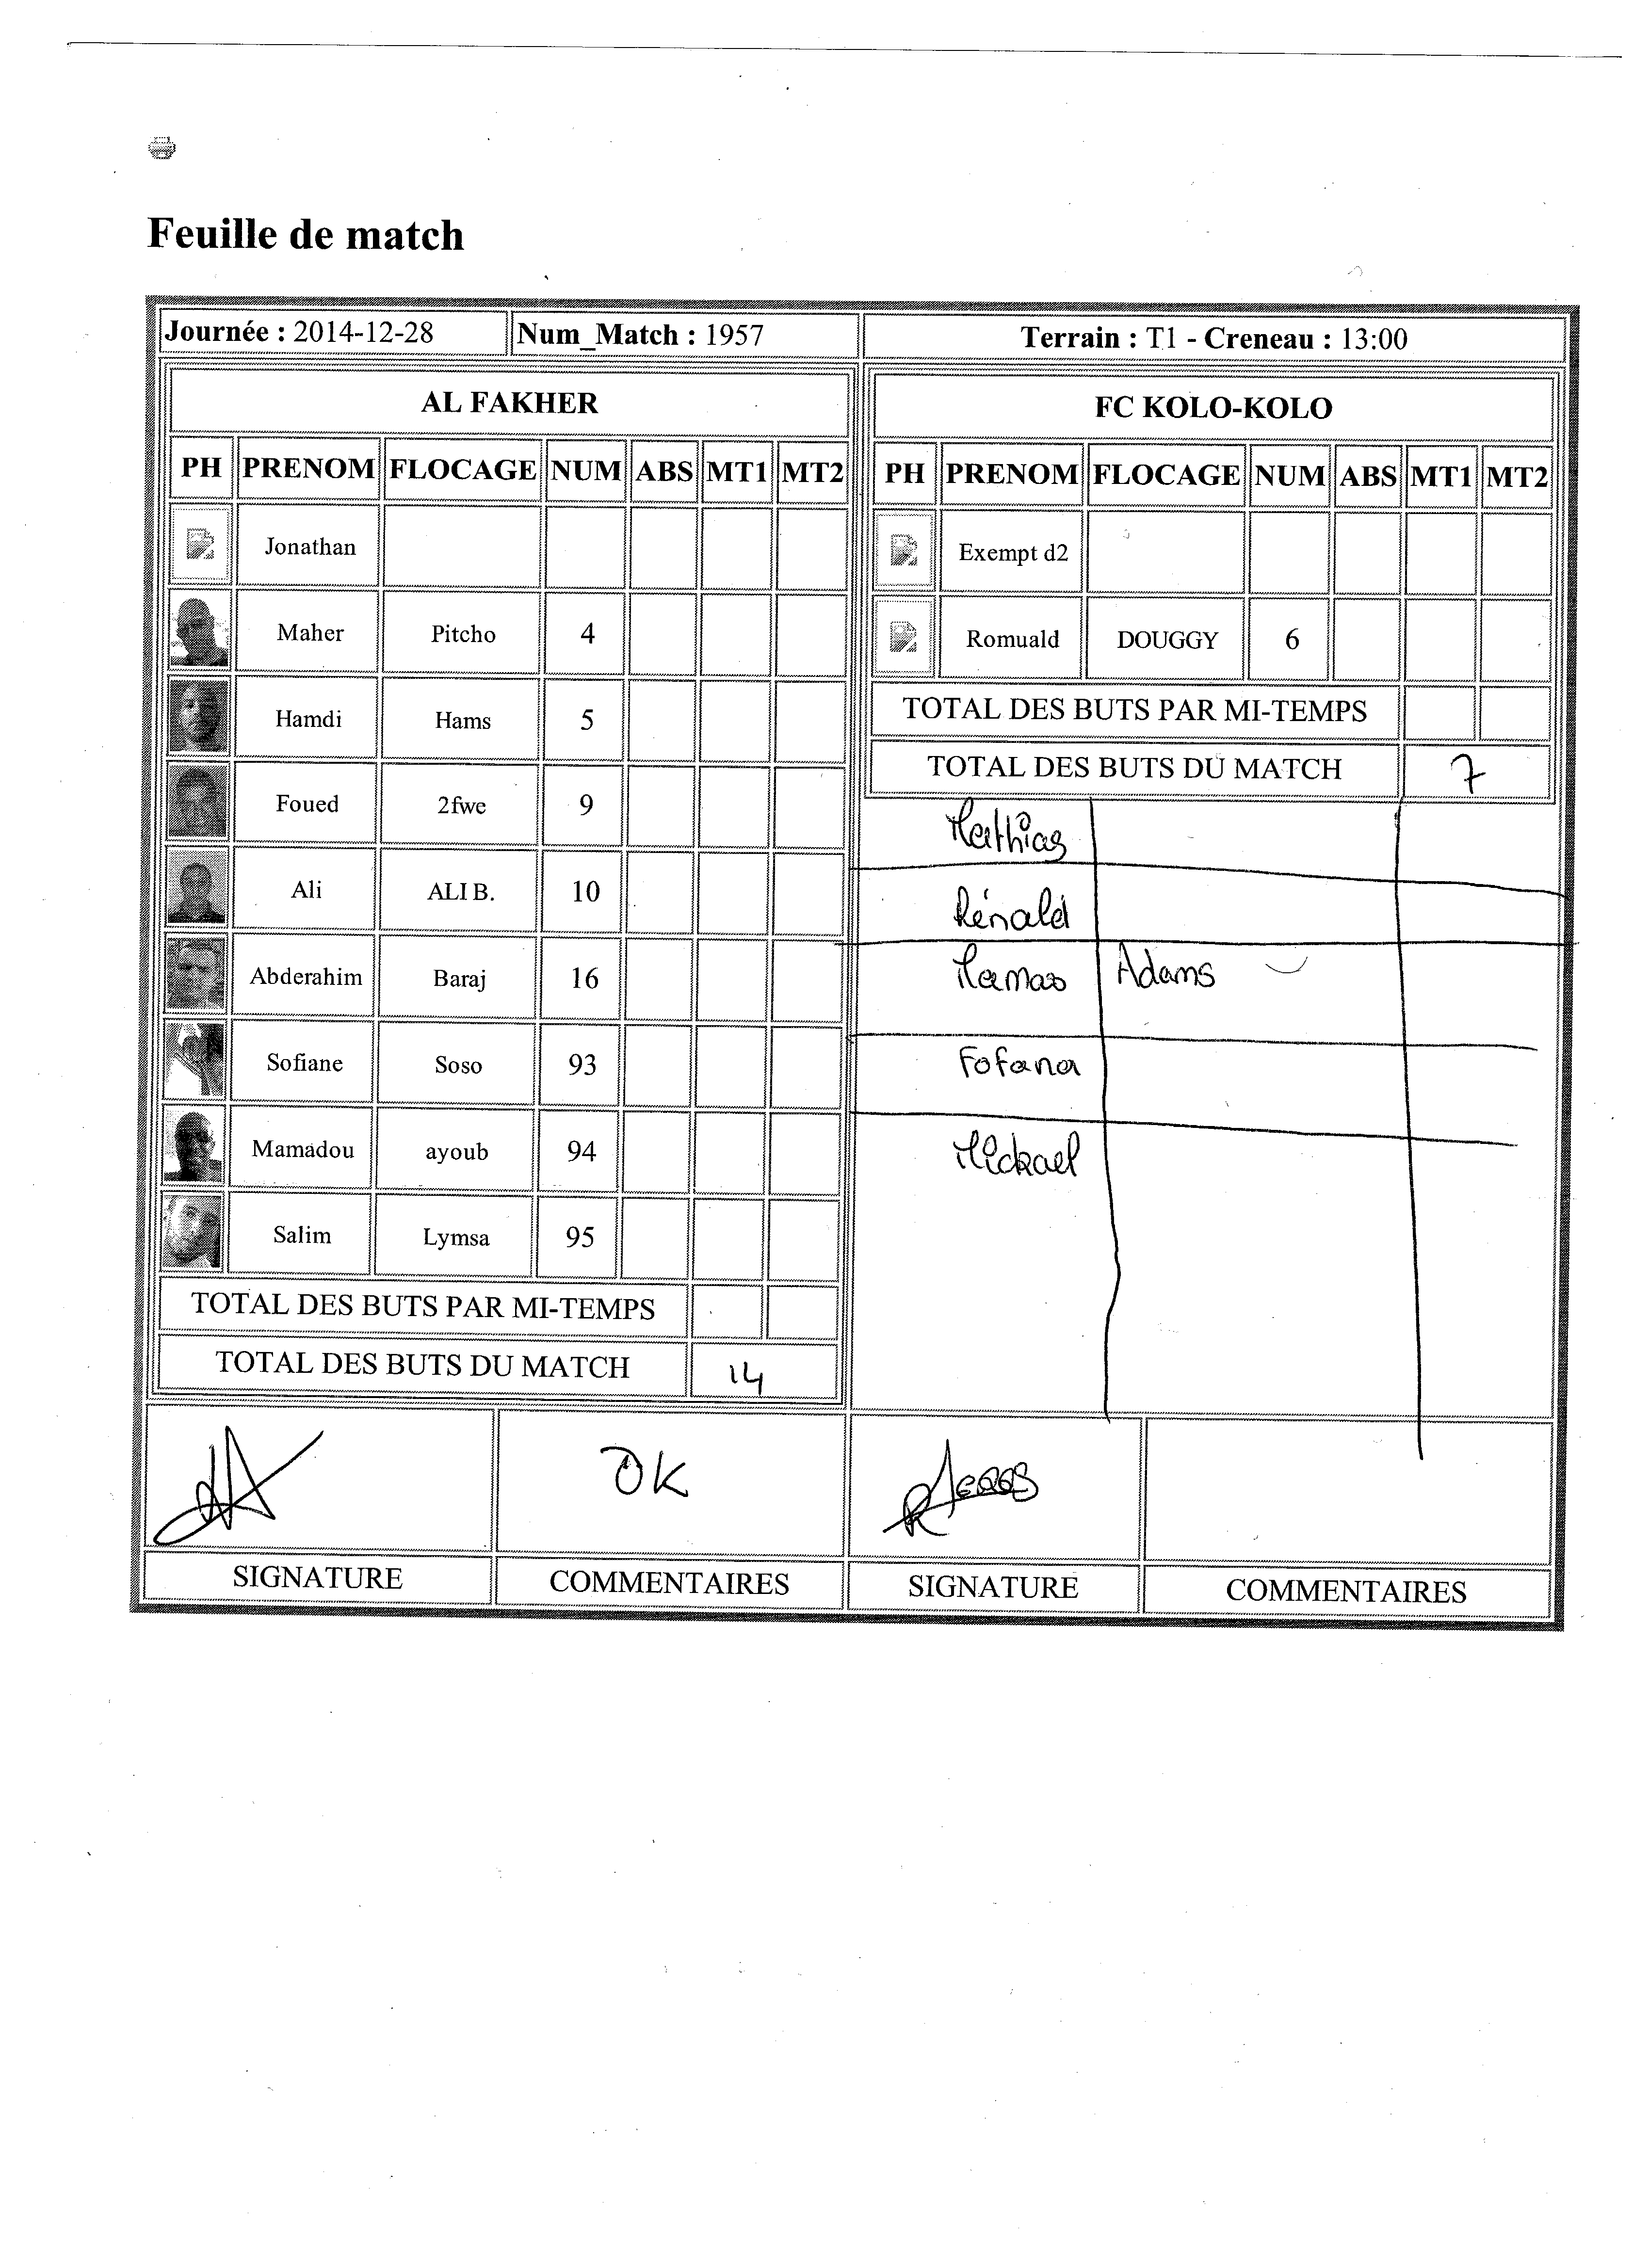 Feuille de match
Journée : 2014-12-28 Num_Match : 1957 Terrain : T1 - Creneau : 13:00
AL FAKHER
PH PRENOM FLOCAGE NUM ABS MT1 MT2
Jonathan
Maher Pitcho 4
Hamdi Hams 5
Foued 2fwe 9
Ali ALI B. 10
Abderahim Baraj 16
Sofiane Soso 93
Mamadou ayoub 94
Salim Lymsa 95
TOTAL DES BUTS PAR MI-TEMPS
TOTAL DES BUTS DU MATCH 14
FC KOLO-KOLO
PH PRENOM FLOCAGE NUM ABS MT1 MT2
Exempt d2
Romuald DOUGGY 6
TOTAL DES BUTS PAR MI-TEMPS
TOTAL DES BUTS DU MATCH 7
Mathias
Rénald
Adams
Fofana
Mickael
OK
SIGNATURE COMMENTAIRES SIGNATURE COMMENTAIRES